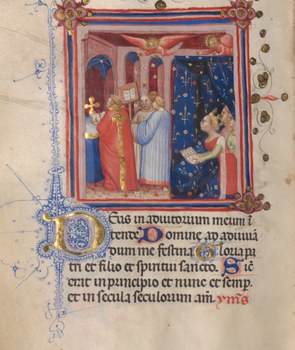 Deus in adiutorium meum in
tende Domine ad adiuuan
dum me festina Gloria pa
tri et filio et spiritui sancto. Sic
erat in principio et nunc et semp.
et in secula seculorum am. ymns